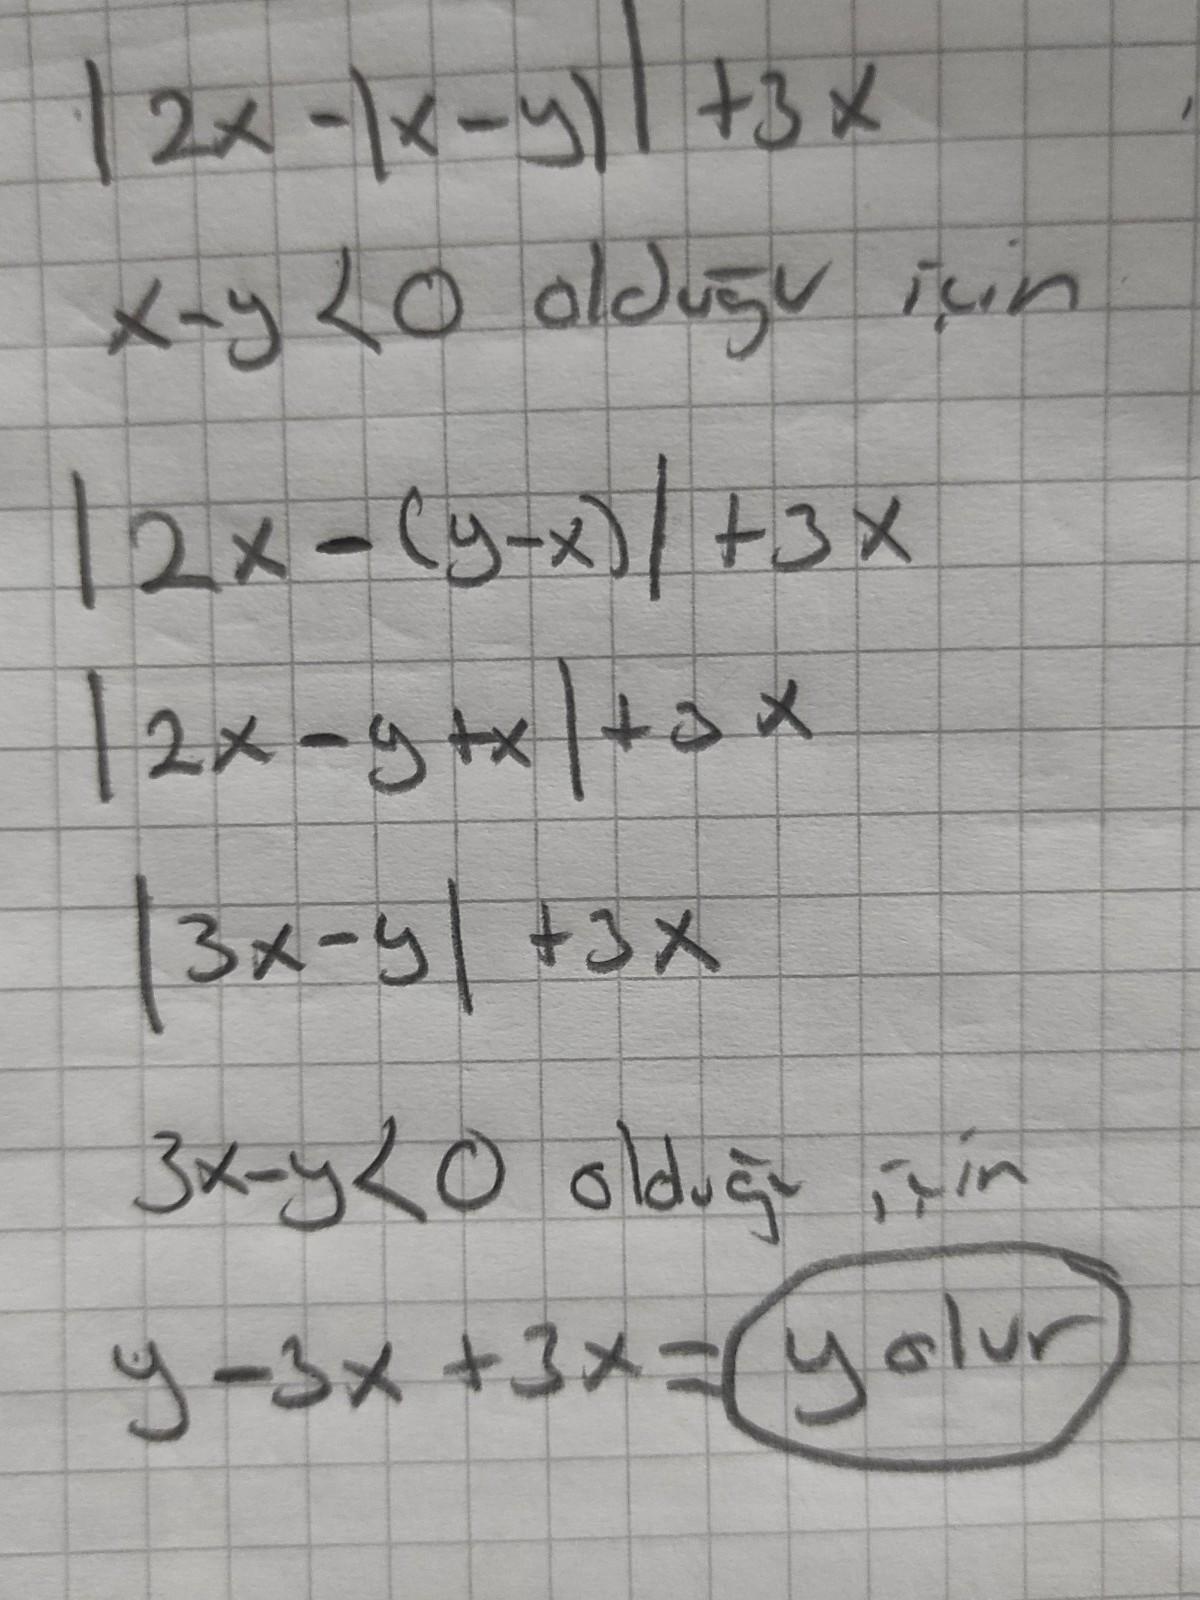 |2x-|x-y||+3x
x-y<0 olduğu için
|2x-(y-x)|+3x
|2x-y+x|+3x
|3x-y|+3x
3x-y<0 olduğu için
y-3x+3x=y olur